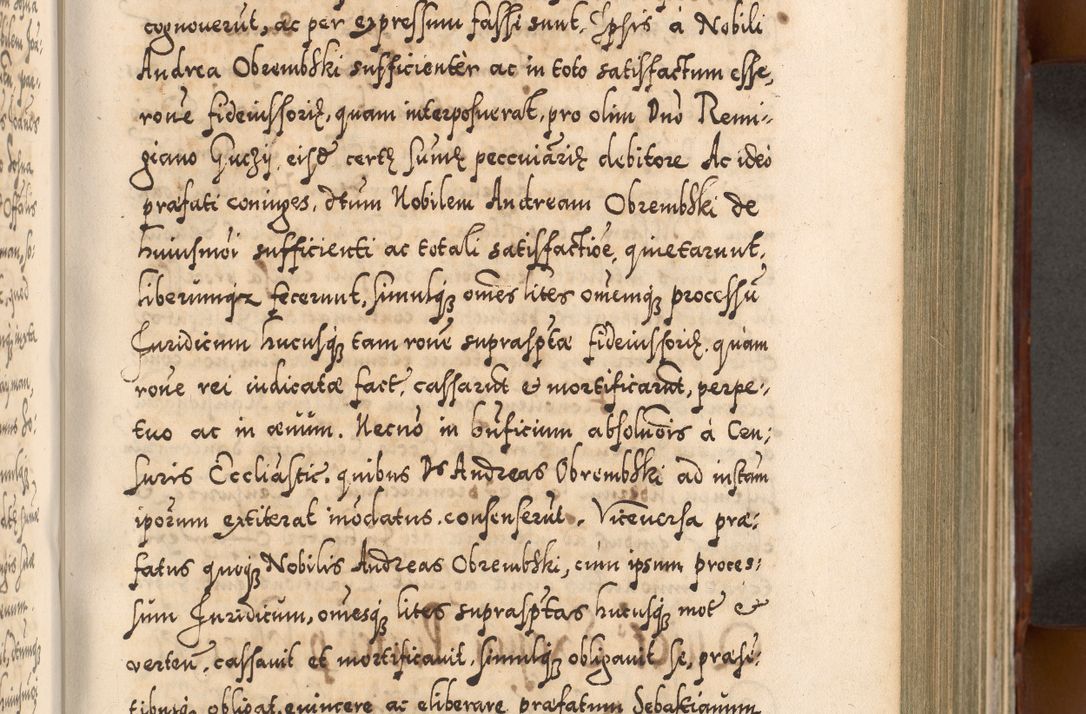 cognouerūt, ac per expressum fassi sunt. Ipsis à Nobili
Andrea Obrembski sufficientèr ac in toto satisfactum esse,
rōne fideiussoriæ, quam interposuerat, pro olim Dnō Remi-
giano Guczij, eisđ certæ sumæ peccuiāriæ debitore Ac ideò
præfati coniuges, dtum Nobilem Andream Obrembski de
huiusmōi sufficienti ac totali satisfactiōe, quietarunt,
liberumq̢ fecerunt, simulq̢ om̄es lites om̄emq̢ processū
Juridicum hucusq̢ tam rōne suprasptæ fideiussoriæ, quam
rōne rei iudicatæ fact, cassarūt et mortificarūt, perpe-
tuo ac in æuūm. Necnō in būficium absoluōis à Cen-
suris Eccliāstic. quibus Ds Andreas Obrembski ad instam
ipōrum extiterat inōdatus, consenserūt. Vice uersa præ-
fatus quoq̢ Nobilis Andreas Obrembski, cum ipsum proces-
sum Juridicum, om̄esq̢ lites suprasptas hucusq̢ mot et
verten, cassauit et mortificauit, simulq̢ obligauit se, præsē-
tibusq̢ obligat, euincere ac eliberare præfatum Sebastianum